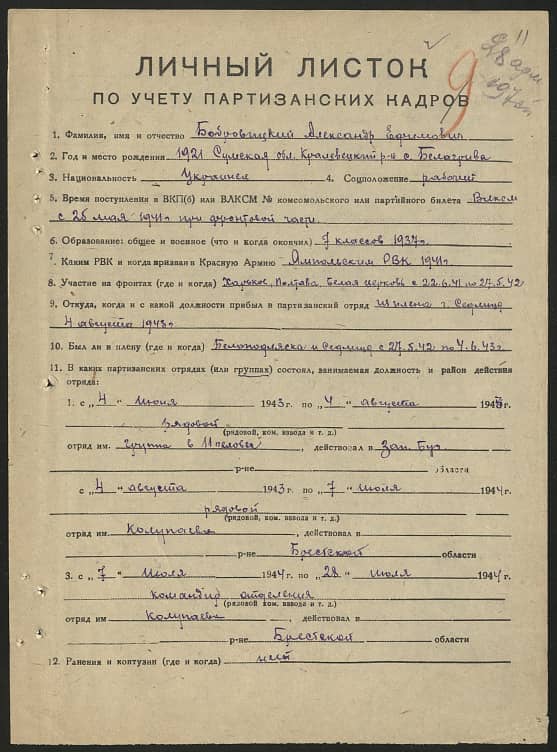 11
9
ЛИЧНЫЙ ЛИСТОК
ПО УЧЕТУ ПАРТИЗАНСКИХ КАДРОВ
1. Фамилия, имя и отчество Бобровицкий Александр Ефимович
2. Год и место рождения 1921 Сумская обл. Кралевецкий р-н с. Белагрива
3. Национальность Украинец 4. Соцположение рабочий
5. Время поступления в ВКП(б) или ВЛКСМ № комсомольского или партийного билета Влксм
с 25 мая 1941г при фронтовой части.
6. Образование: общее и военное (что и когда окончил) 7 классов 1937г.
7. Каким РВК и когда призван в Красную Армию Ямпольским РВК 1941г.
8. Участие на фронтах (где и когда) Харьков, Полтава, Белая церковь с 22.6.41 по 27.5.42
9. Откуда, когда и с какой должности прибыл в партизанский отряд из плена г. Седлице
4 августа 1943г
10. Был ли в плену (где и когда) Белоподляска и Седлице с 27.5.42 по 4.6.43г.
11. В каких партизанских отрядах (или группах) состоял, занимаемая должность и район действия
отряда:
1. с „4" июня 1943 г. по „4" августа 1943 г.
рядовой
(рядовой, ком. взвода и т. д.)
отряд им. группа в 11 человек, действовал в Зап. Буг
р-не области
с „4" августа 1943 г. по „7" июля 1944 г.
рядовой
(рядовой, ком. взвода и т. д.)
отряд им. Колупаева, действовал в
р-не Брестской области
3. с „7" июля 1944 г. по „28" июля 1944 г.
командир отделения
(рядовой, ком. взвода и т. д.)
отряд им Колупаева, действовал в
р-не Брестской области
12. Ранения и контузии (где и когда) нет